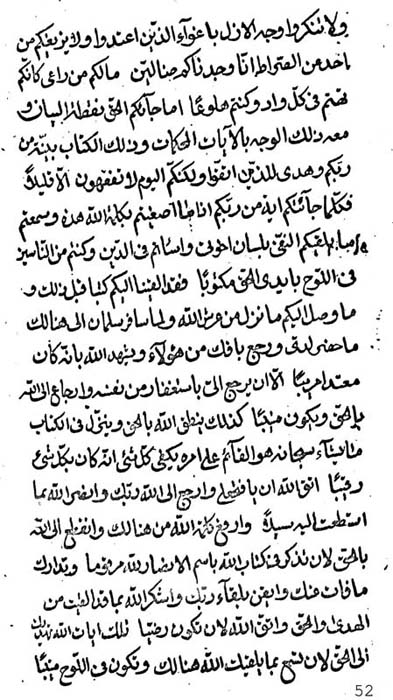 ولا تنكروا وجه الازل باغوآء الذين اعتدوا ولا يزيغكم من
ياخذ من الصراط انا وجدناكم ضالين مالكم من راعى كانكم
تهتم فى كل واد وكنتم هلوعًا اما جآئكم الحق بنقطة البيان و
معه ذلك الوجه بالآيات المحكمات وذلك الكتاب بينة من
ربكم وهدى للذين اتقوا ولكنكم اليوم لا تفقهون الا قليلًا
فكلما جائتكم اية من ربكم اذا ما اصغيتم بكلمة الله هذه وسمعتم
ما يلقيكم التى بلسان اخرى واسائتم فى الدين وكنتم من الناسين
فى اللوح بايدى الحق مكتوبًا فقد القينا اليكم كتبا قبل ذلك و
ما وصل اليكم ما نزل من عرش الله ولما سافر سلمان الى هنالك
ما حضر لدى ورجع بافك من هؤلاء ويشهد الله بانه كان
معتد مريبًا الا ان يرجع الى باستغفار من نفسه وارجاع الى الله
بالحق ويكون منيبًا كذلك ينطق الله بالحق وينزل فى الكتاب
ما يشآء سبحانه هو القآئم على امره يكفى كل شئ انه كان بكل شئ
رقيبًا اتق الله ان يا وارجع الى الله ربك وانصر الله بما
استطعت اليه سبيلًا وارفع كلمة الله من هنالك وانقطع الى الله
بالحق لان تذكر فى كتاب الله باسم الانصار لله مرقوما وتدارك
ما فات عنك وايقن بلقآء ربك واشكر الله بما قد القيت من
الهدى والحق واتق الله لان تكون رضيًا تلك ايات الله تهديك
الى الحق لان تتبع بما يلقيك الله هنالك وتكون فى اللوح منيبًا
52